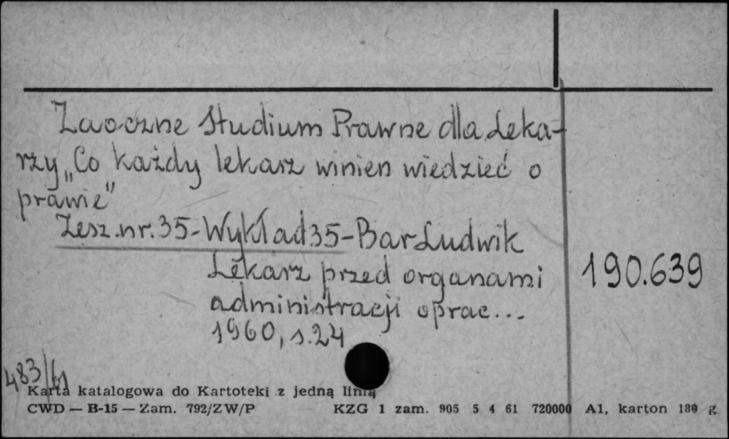 Zaoczne Studium Prawne dla Leka-
rzy „Co każdy lekarz winien wiedzieć o
prawie"
Zesz.nr.35-Wykład 35-Bar Ludwik
Lekarz przed organami
administracji oprac...
1960, s.24
190.639
483/61
Karta katalogowa do Kartoteki z jedną linią
CWD — B-15 — Zam. 792/ZW/P KZG 1 zam. 905 5 4 61 720000 A1, karton 180 g